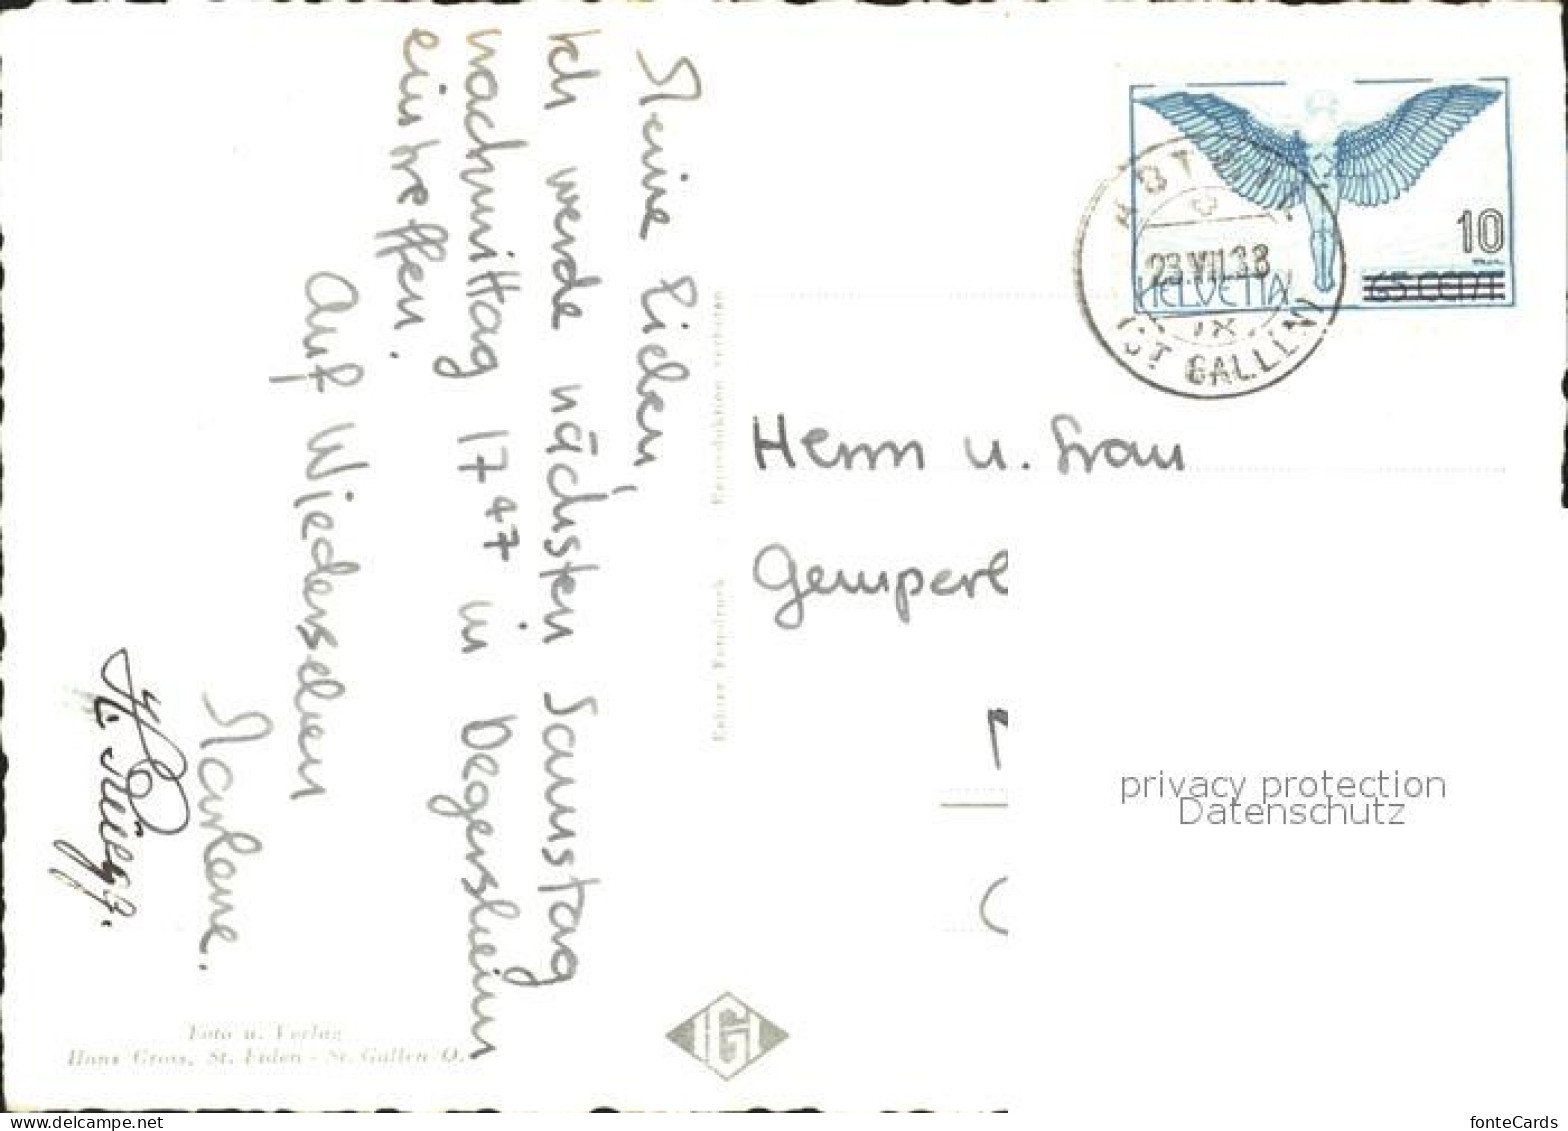 Meine Lieben,
Ich werde nächsten Samstag
nachmittag 17⁴⁷ in Degersheim
eintreffen.
Auf Wiedersehen
Marlene.
Herrn u. Frau
Gemperl
10
65 CENT.
HELVETIA
23.VII.38
IX
(ST GALLEN)
Echter Fotodruck - Reproduktion verboten
Foto u. Verlag
Hans Gross, St. Fiden - St. Gallen O.
privacy protection
Datenschutz
fonteCards